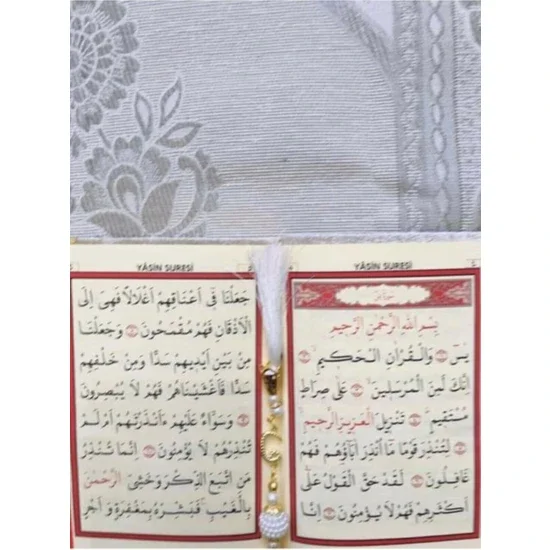 YÂSİN SURESİ 5
بِسْمِ اللّٰهِ الرَّحْمٰنِ الرَّحِيمِ
يٰسٓ وَالْقُرْاٰنِ الْحَكِيمِ
اِنَّكَ لَمِنَ الْمُرْسَلِينَ عَلٰى صِرَاطٍ
مُسْتَقِيمٍ تَنْزِيلَ الْعَزِيزِ الرَّحِيمِ
لِتُنْذِرَ قَوْمًا مَٓا اُنْذِرَ اٰبَٓاؤُهُمْ فَهُمْ
غَافِلُونَ لَقَدْ حَقَّ الْقَوْلُ عَلٰٓى
اَكْثَرِهِمْ فَهُمْ لَا يُؤْمِنُونَ اِنَّا
YÂSİN SURESİ
جَعَلْنَا فِٓي اَعْنَاقِهِمْ اَغْلَالًا فَهِيَ اِلَى
الْاَذْقَانِ فَهُمْ مُقْمَحُونَ وَجَعَلْنَا
مِنْ بَيْنِ اَيْدِيهِمْ سَدًّا وَمِنْ خَلْفِهِمْ
سَدًّا فَاَغْشَيْنَاهُمْ فَهُمْ لَا يُبْصِرُونَ
وَسَوَٓاءٌ عَلَيْهِمْ ءَاَنْذَرْتَهُمْ اَمْ لَمْ
تُنْذِرْهُمْ لَا يُؤْمِنُونَ اِنَّمَا تُنْذِرُ
مَنِ اتَّبَعَ الذِّكْرَ وَخَشِيَ الرَّحْمٰنَ
بِالْغَيْبِ فَبَشِّرْهُ بِمَغْفِرَةٍ وَاَجْرٍ